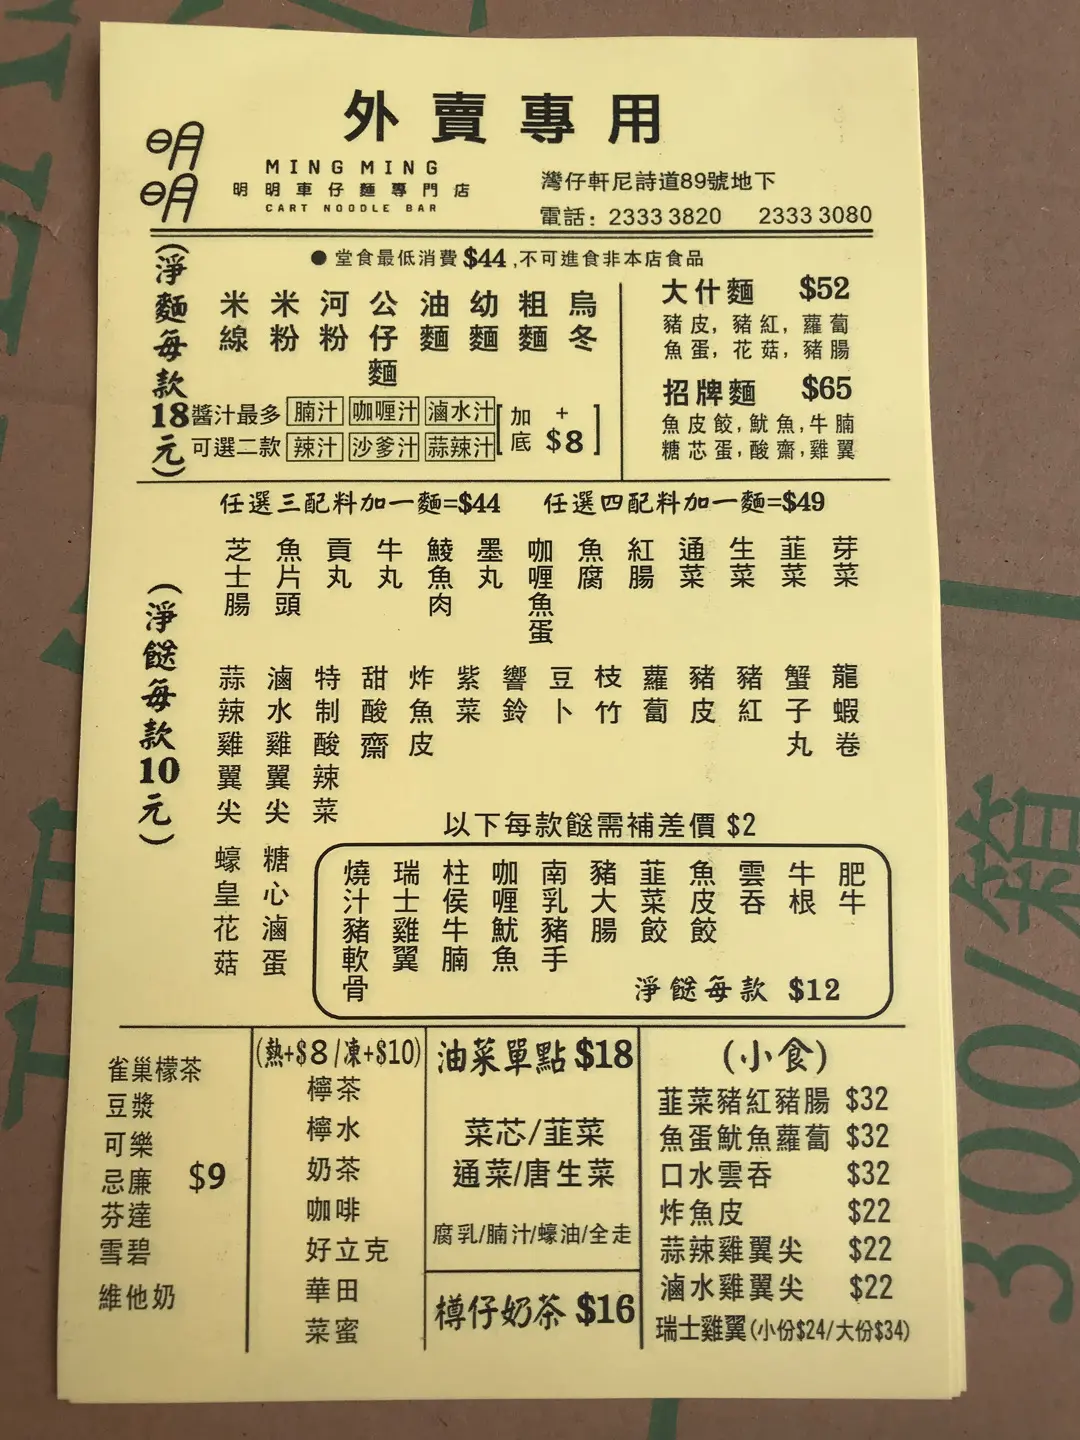 外賣專用
明明
MING MING
明明車仔麵專門店
CART NOODLE BAR
灣仔軒尼詩道89號地下
電話: 2333 3820 2333 3080
● 堂食最低消費 $44 ,不可進食非本店食品
(淨麵每款18元)
米線
米粉
河粉
公仔麵
油麵
幼麵
粗麵
烏冬
醬汁最多 腩汁 咖喱汁 滷水汁
可選二款 辣汁 沙爹汁 蒜辣汁
[加底 + $8]
大什麵 $52
豬皮, 豬紅, 蘿蔔
魚蛋, 花菇, 豬腸
招牌麵 $65
魚皮餃,魷魚,牛腩
糖芯蛋,酸齋,雞翼
任選三配料加一麵=$44 任選四配料加一麵=$49
(淨餸每款10元)
芝士腸
魚片頭
貢丸
牛丸
鯪魚肉
墨丸
咖喱魚蛋
魚腐
紅腸
通菜
生菜
韮菜
芽菜
蒜辣雞翼尖
滷水雞翼尖
特制酸辣菜
甜酸齋
炸魚皮
紫菜
響鈴
豆卜
枝竹
蘿蔔
豬皮
豬紅
蟹子丸
龍蝦卷
蠔皇花菇
糖心滷蛋
以下每款餸需補差價 $2
燒汁豬軟骨
瑞士雞翼
柱侯牛腩
咖喱魷魚
南乳豬手
豬大腸
韮菜餃
魚皮餃
雲吞
牛根
肥牛
淨餸每款 $12
雀巢檬茶
豆漿
可樂
忌廉 $9
芬達
雪碧
維他奶
(熱+$8/凍+$10)
檸茶
檸水
奶茶
咖啡
好立克
華田
菜蜜
油菜單點 $18
菜芯/韮菜
通菜/唐生菜
腐乳/腩汁/蠔油/全走
樽仔奶茶 $16
(小食)
韮菜豬紅豬腸 $32
魚蛋魷魚蘿蔔 $32
口水雲吞 $32
炸魚皮 $22
蒜辣雞翼尖 $22
滷水雞翼尖 $22
瑞士雞翼(小份$24/大份$34)
300/箱